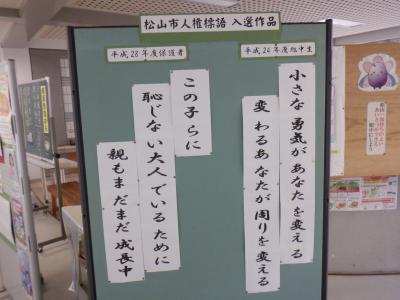 松山市人権標語 入選作品
平成24年度旭中生
小さな勇気があなたを変える
変わるあなたが周りを変える
平成28年度保護者
この子らに
恥じない大人でいるために
親もまだまだ成長中